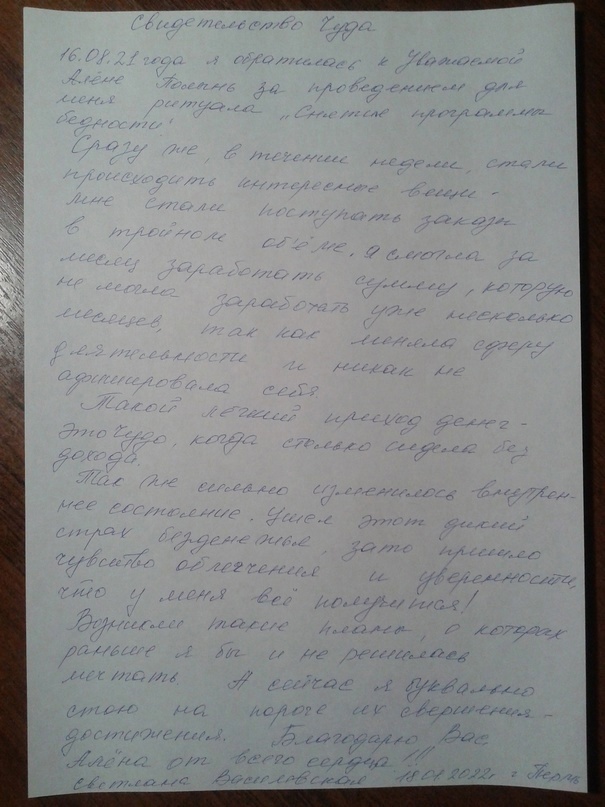 Свидетельство Чуда
16.08.21 года я обратилась к Уважаемой
Алёне Полынь за проведением для
меня ритуала „Снятие программы
бедности".
Сразу же, в течении недели, стали
происходить интересные вещи -
мне стали поступать заказы
в тройном объёме, я смогла за
месяц заработать сумму, которую
не могла заработать уже несколько
месяцев, так как меняла сферу
деятельности и никак не
афишировала себя.
Такой лёгкий приход денег -
это чудо, когда столько сидела без
дохода.
Так же сильно изменилось внутрен-
нее состояние. Ушел этот дикий
страх безденежья, зато пришло
чувство облегчения и уверенности,
что у меня всё получится!
Возникли такие планы, о которых
раньше я бы и не решилась
мечтать. А сейчас я буквально
стою на пороге их свершения-
достижения. Благодарю Вас,
Алёна от всего сердца!!!
Светлана Василевская 18.01.2022г. г. Пермь